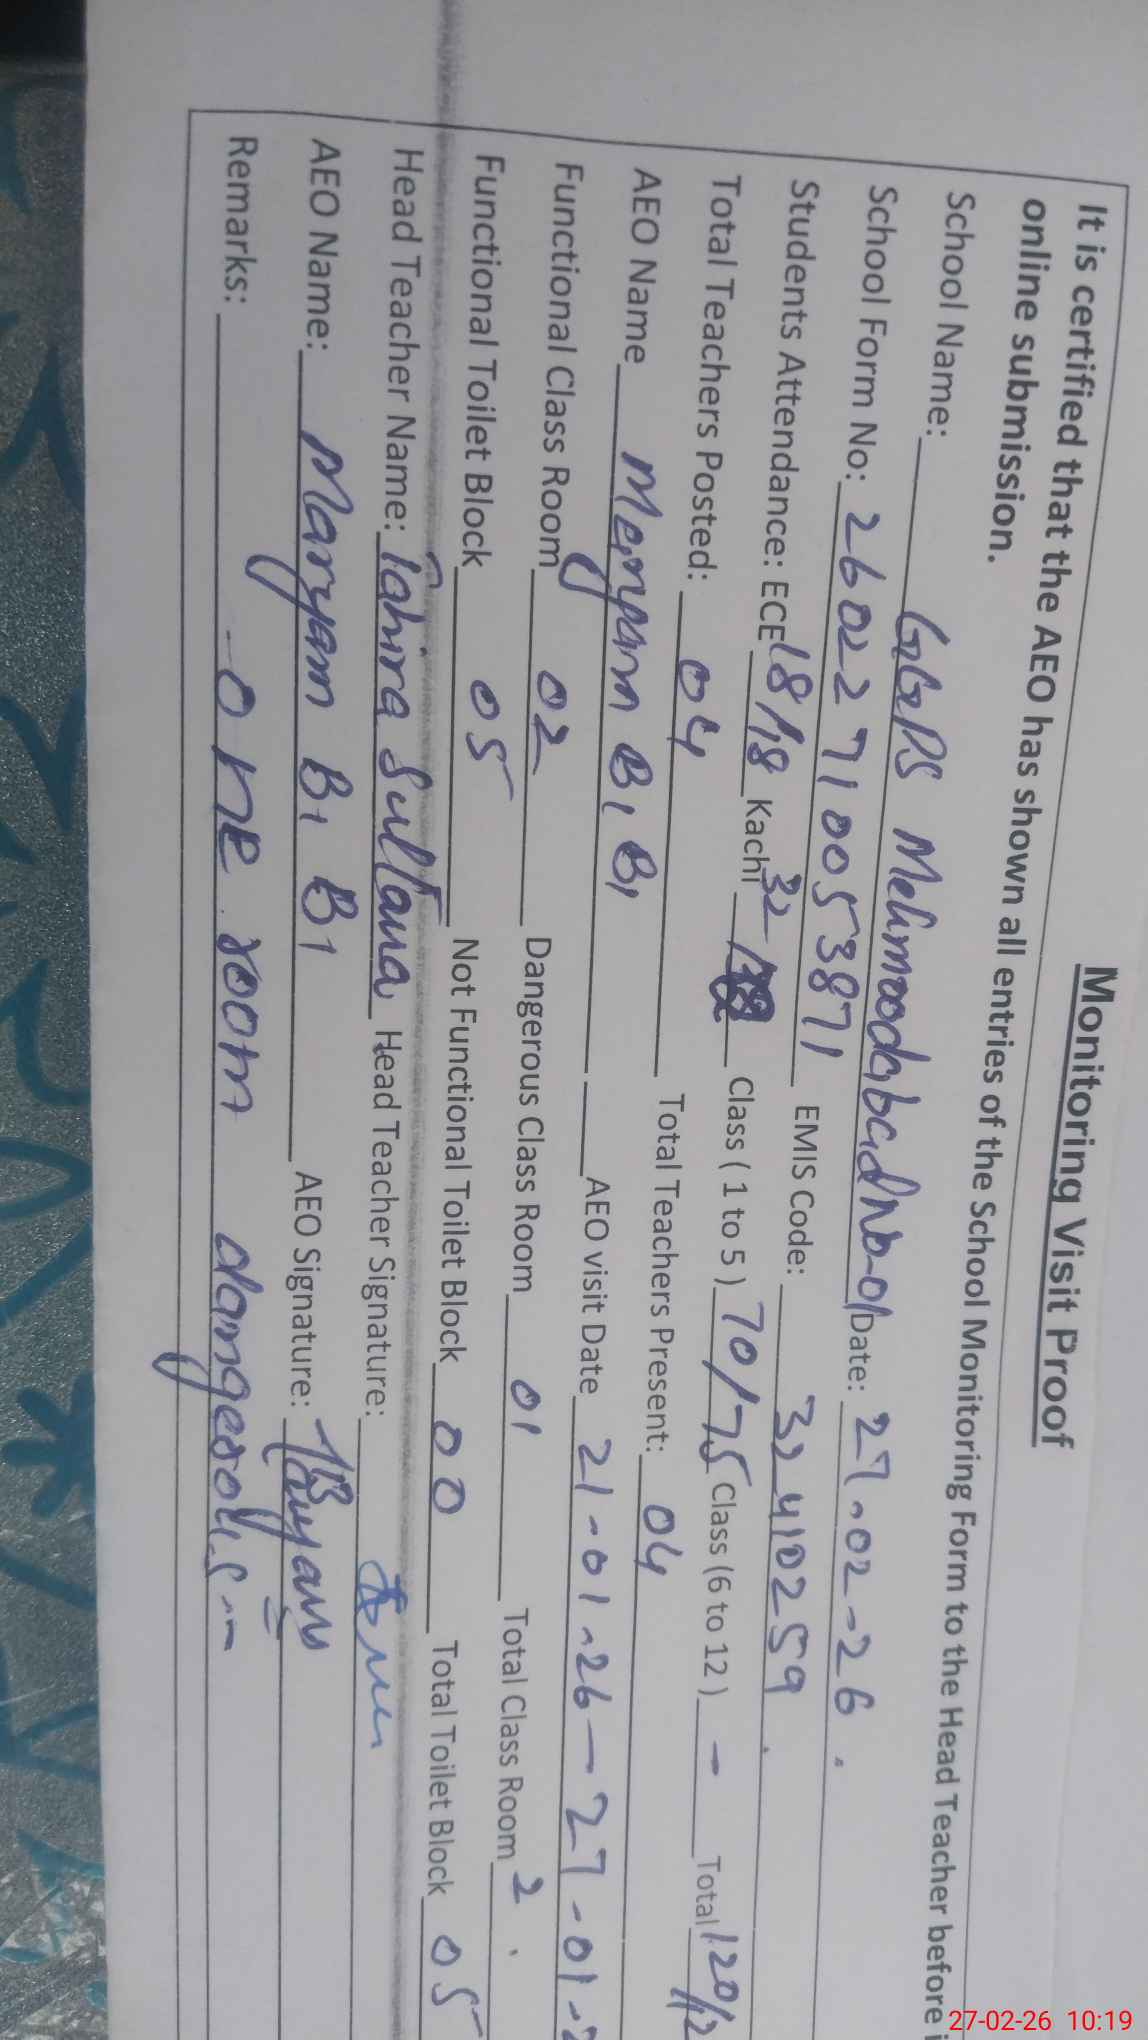 Monitoring Visit Proof
It is certified that the AEO has shown all entries of the School Monitoring Form to the Head Teacher before i
online submission.
School Name: GGPS Mehmoodabad no-01 Date: 27-02-26.
School Form No: 26022710053871 EMIS Code: 32410259
Students Attendance: ECE 18/18 Kachi 32/ Class ( 1 to 5 ) 70/75 Class (6 to 12 ) - Total 120/12
Total Teachers Posted: 04 Total Teachers Present: 04
AEO Name Maryam Bi Bi AEO visit Date 21-01-26-27-01-2
Functional Class Room 02 Dangerous Class Room 01 Total Class Room 2
Functional Toilet Block 05 Not Functional Toilet Block 00 Total Toilet Block 05
Head Teacher Name: Tahira Sultana Head Teacher Signature:
AEO Name: Maryam Bi Bi AEO Signature: Maryam
Remarks: One room dangerous
27-02-26 10:19